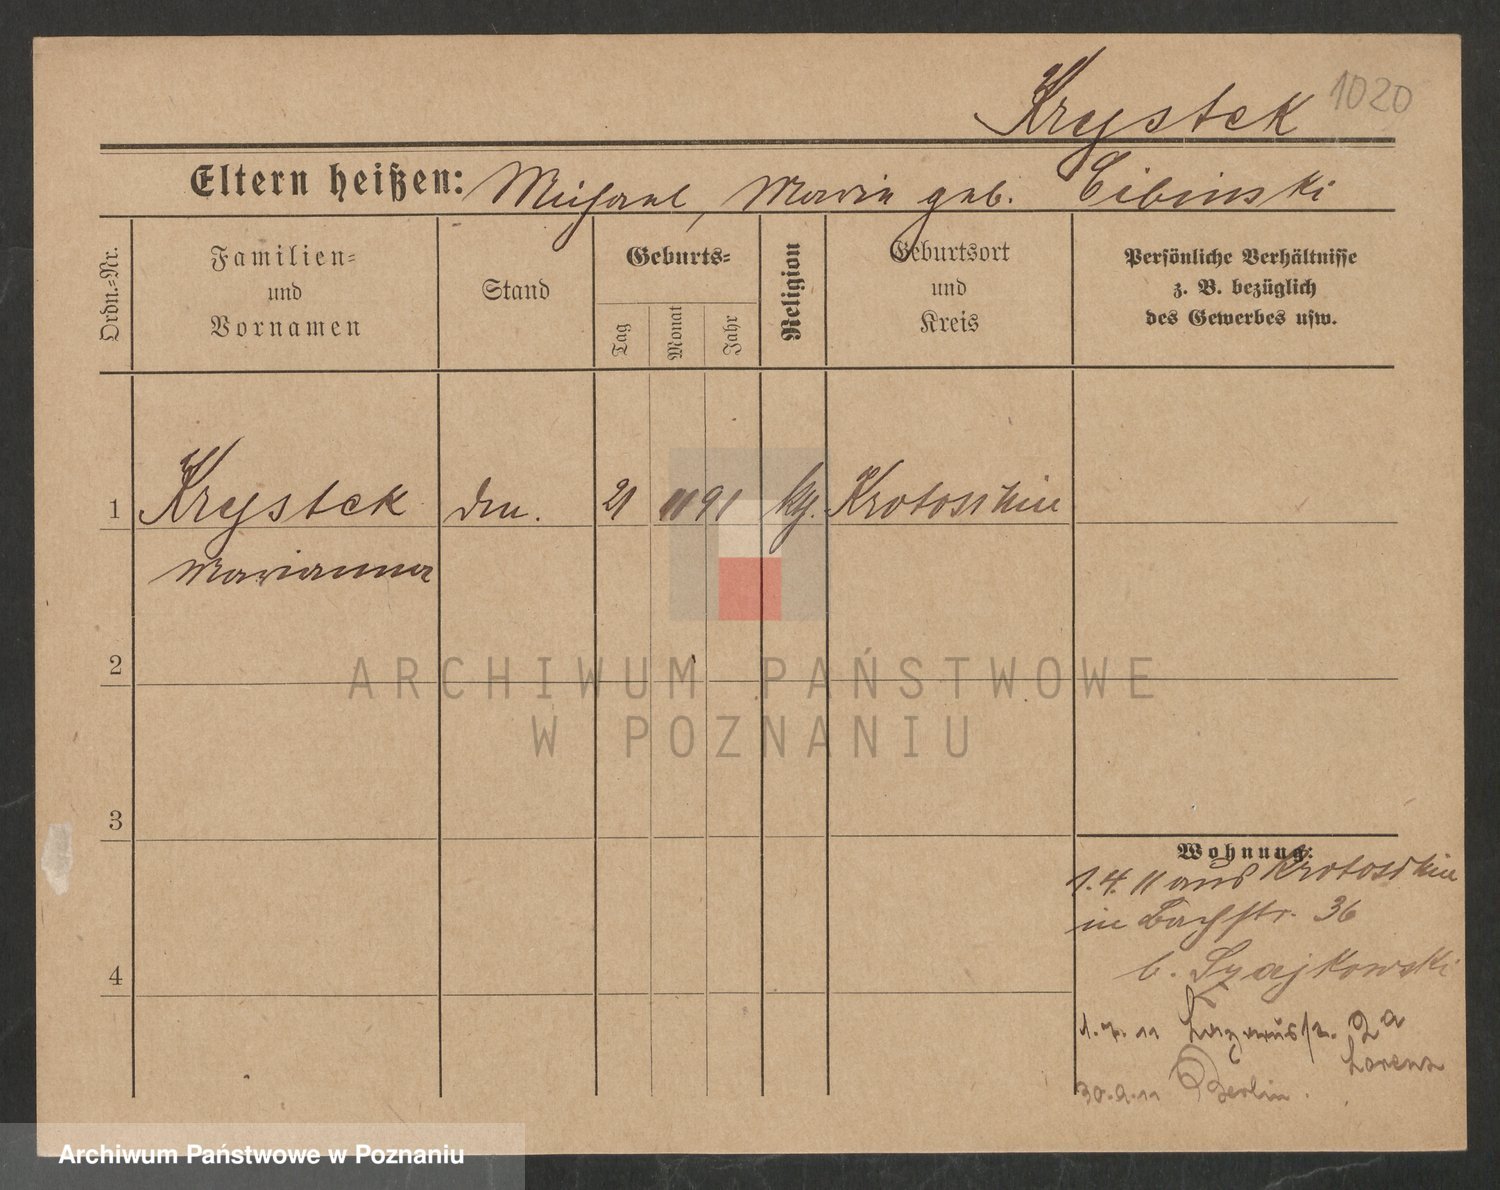 Krystek 1020
Eltern heißen: Michael, Marie geb. Cibinski
Ordn.=Nr.
Familien=
und
Vornamen
Stand
Geburts=
Tag
Monat
Jahr
Religion
Geburtsort
und
Kreis
Persönliche Verhältnisse
z. B. bezüglich
des Gewerbes usw.
1 Krystek 21 11 91 Krotoschin
Marianna
2
ARCHIWUM PAŃSTWOWE
W POZNANIU
3
Wohnung:
1. 4. 11 aus Krotoschin
in Bachstr. 36
b. Szajkowski
1. 7. 11 Lazarusstr. 2a
Lorenz
4
30. 9. 11 Berlin.
Archiwum Państwowe w Poznaniu